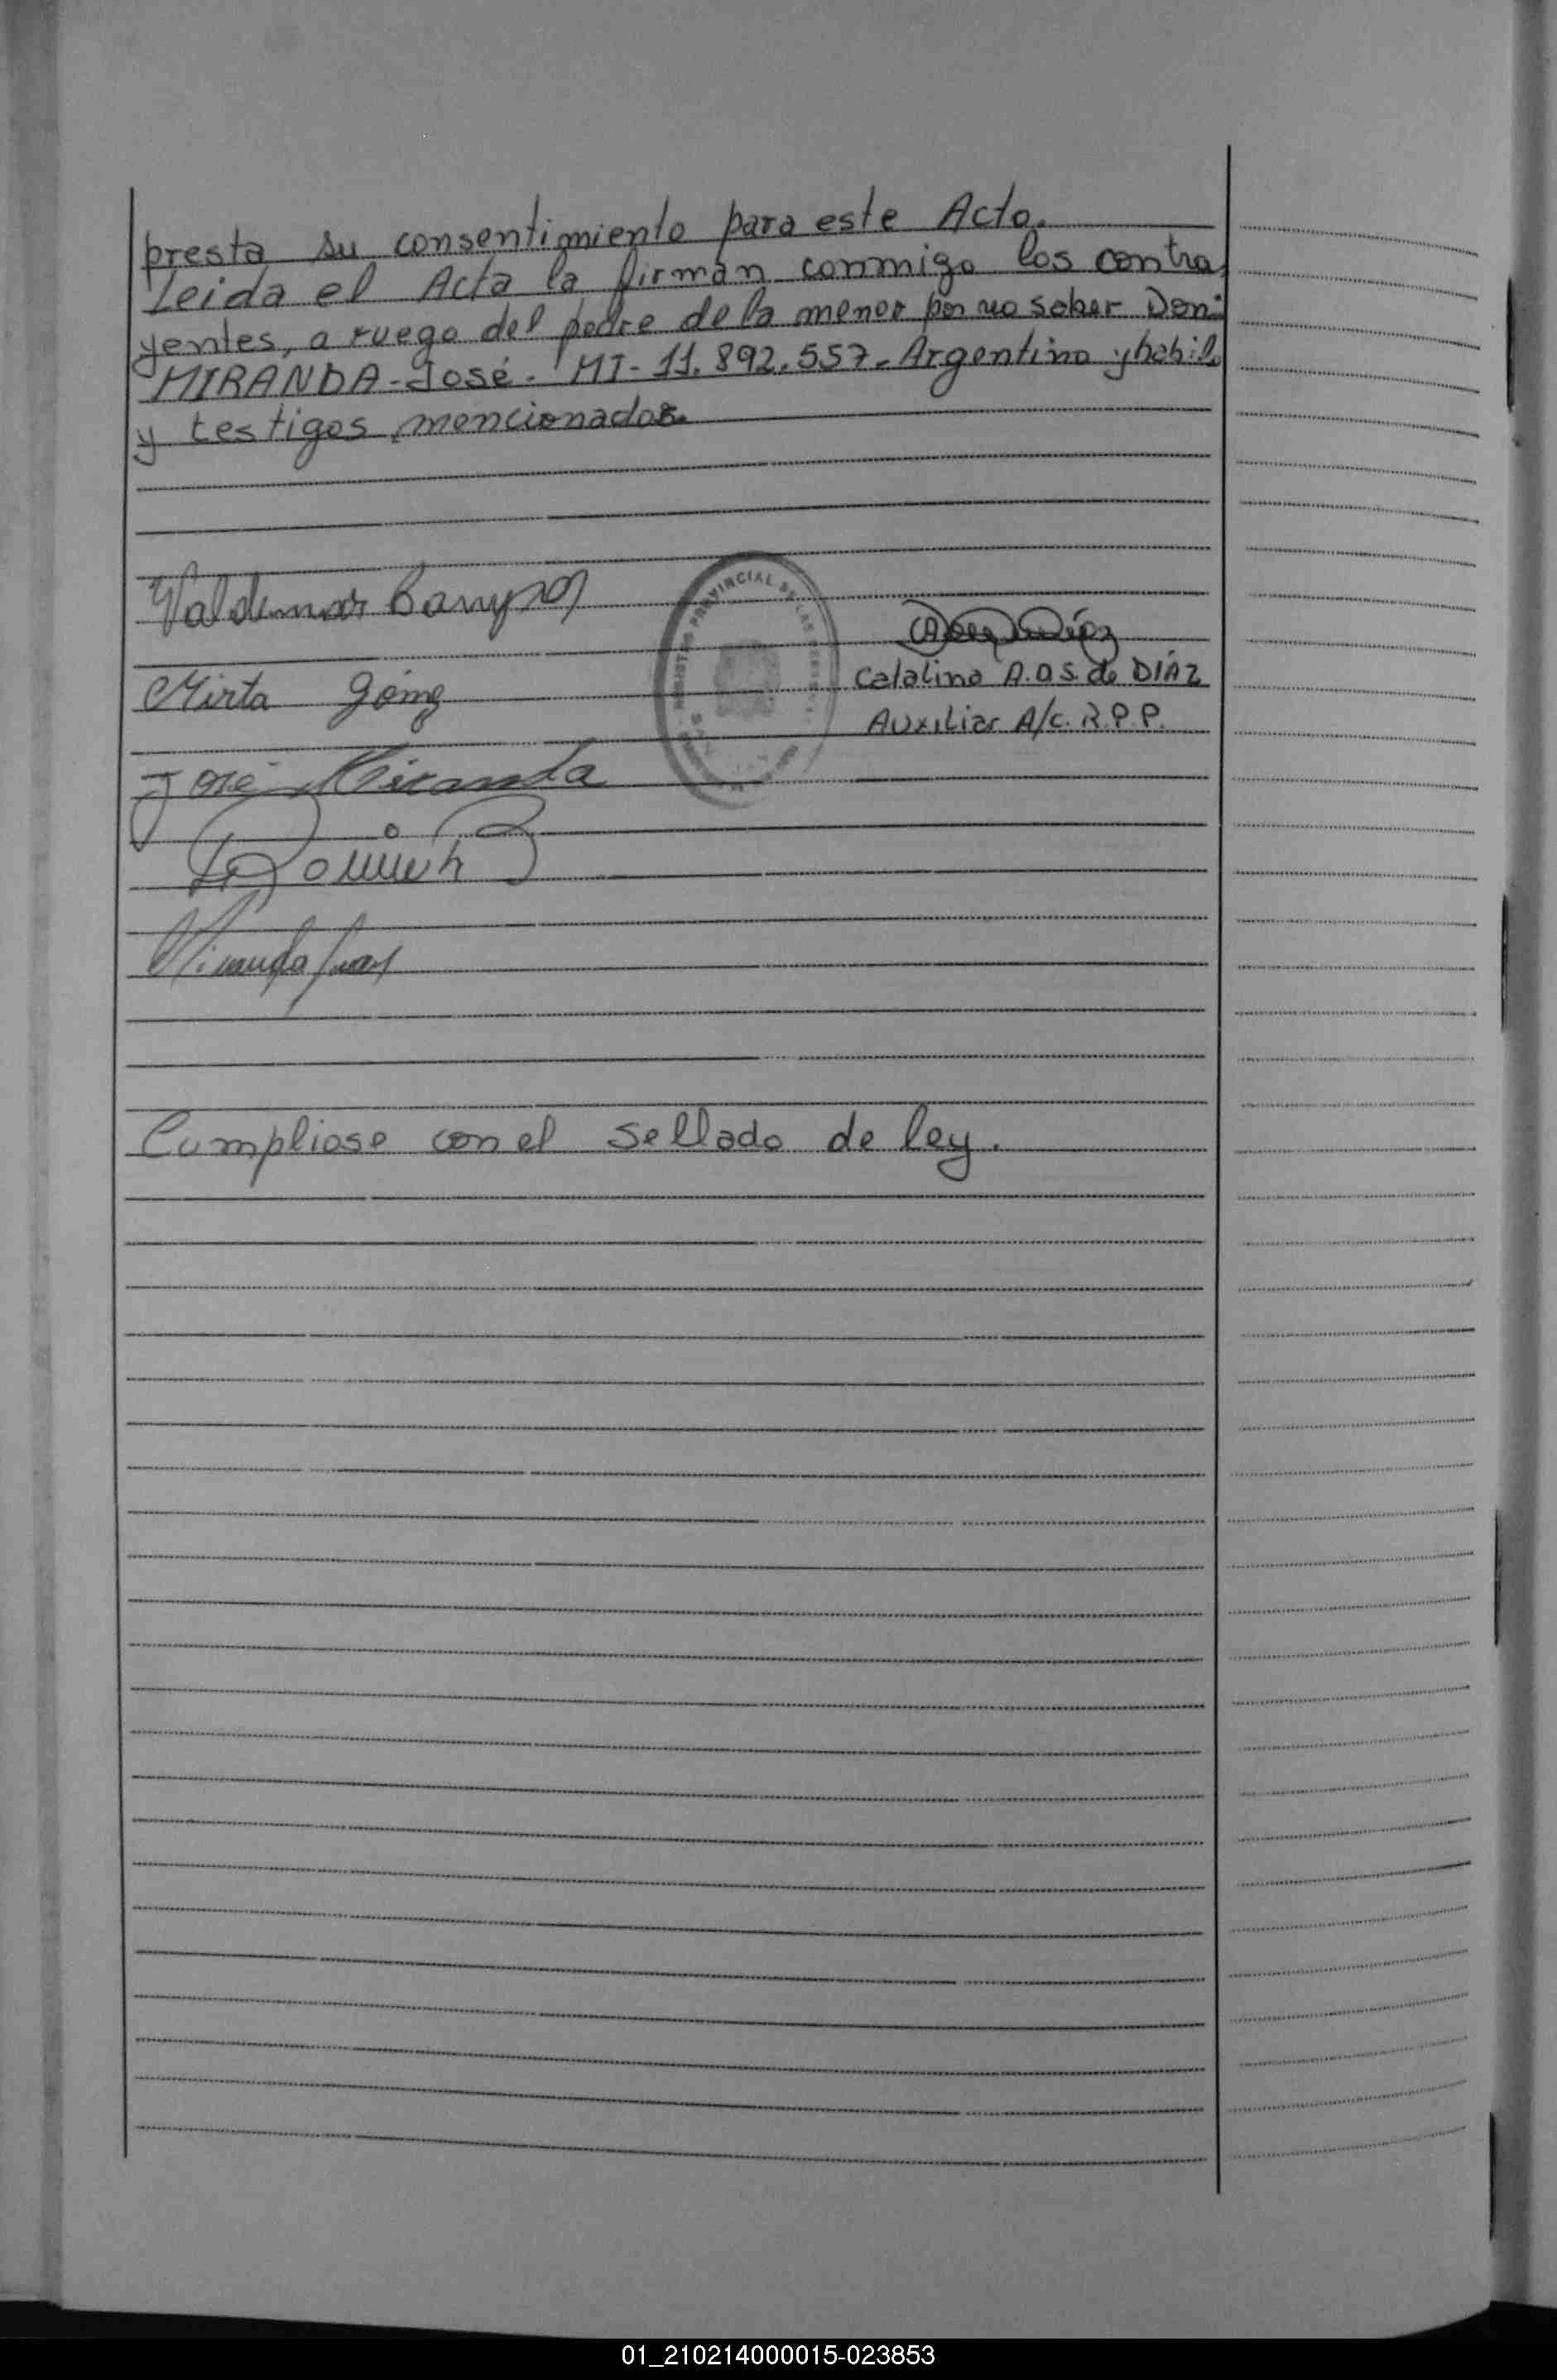 presta su consentimiento para este Acto.
Leida el Acta la firman conmigo los contra
yentes, a ruego del padre de la menor por no saber Don:
MIRANDA - José - MI - 11.892.557 - Argentino y habil
y testigos mencionados.
Valdemar Campos
PROVINCIAL DE LAS
Catalina A. O S. de DÍAZ
Mirta Gómez
Auxiliar A/c. R.P.P.
José Miranda
Miranda Juan
Cumpliose con el sellado de ley.
01_210214000015-023853